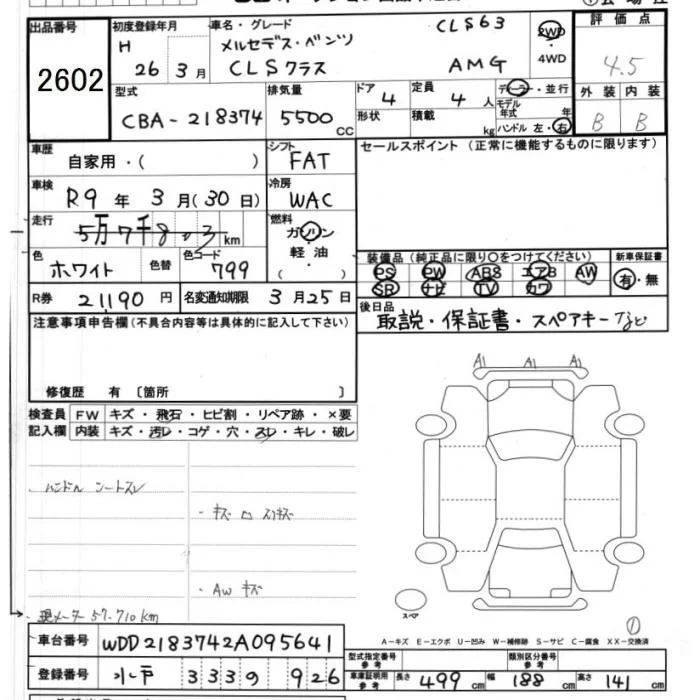 出品番号 初度登録年月 車名・グレード CLS63 2WD 評価点
H メルセデス・ベンツ ・
2602 26 3月 CLSクラス AMG 4WD 4.5
型式 排気量 ドア 定員 ディーラー・並行 外装 内装
CBA-218374 5500 CC 4 4人 モデル年式 年 B B
形状 積載 kg ハンドル 左・右
車歴 シフト セールスポイント(正常に機能するものに限ります)
自家用・( ) FAT
車検 冷房
R9年3月(30日) WAC
走行 燃料
5万7千8 3 km ガソリン
・
色 色替 色コード 軽油 装備品(純正品に限り○をつけてください) 新車保証書
ホワイト 799 ・( ) PS PW ABS エアB AW 有・無
SR ナビ TV カワ
R券 21,190円 名変通知期限 3月25日 後日品
取説・保証書・スペアキー
注意事項申告欄(不具合内容等は具体的に記入して下さい)
修復歴 有〔箇所 〕
A1 A1 A1
検査員 FW キズ・飛石・ヒビ割・リペア跡・×要
記入欄 内装 キズ・汚レ・コゲ・穴・スレ・キレ・破レ
・ハンドル シートスレ
・キズ
・AW キズ
現メーター 57,710km
スペア
①
A-キズ E-エクボ U-凹み W-補修跡 S-サビ C-腐食 XX-交換済
車台番号 WDD2183742A095641
型式指定番号 参考 類別区分番号 参考
登録番号 水戸 333 の 926
車庫証明用 参考 長さ 499 cm 幅 188 cm 高さ 141 cm